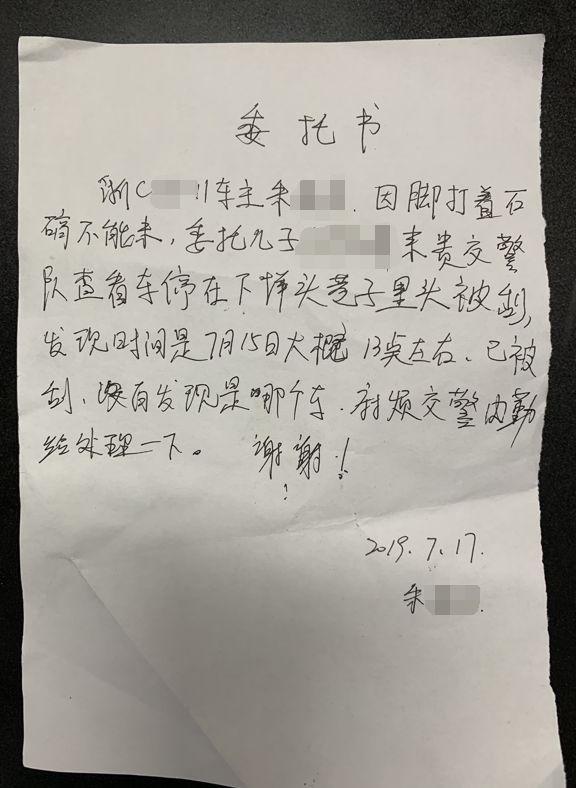 委托书
浙C 车主朱 . 因脚打着石
膏不能来，委托儿子 来贵交警
队查看车停在下垟头巷子里头被刮,
发现时间是7月15日大概 13点左右、已被
刮、没有发现是哪个车. 麻烦交警内勤
给处理一下。 谢谢!
2019.7.17.
朱 .